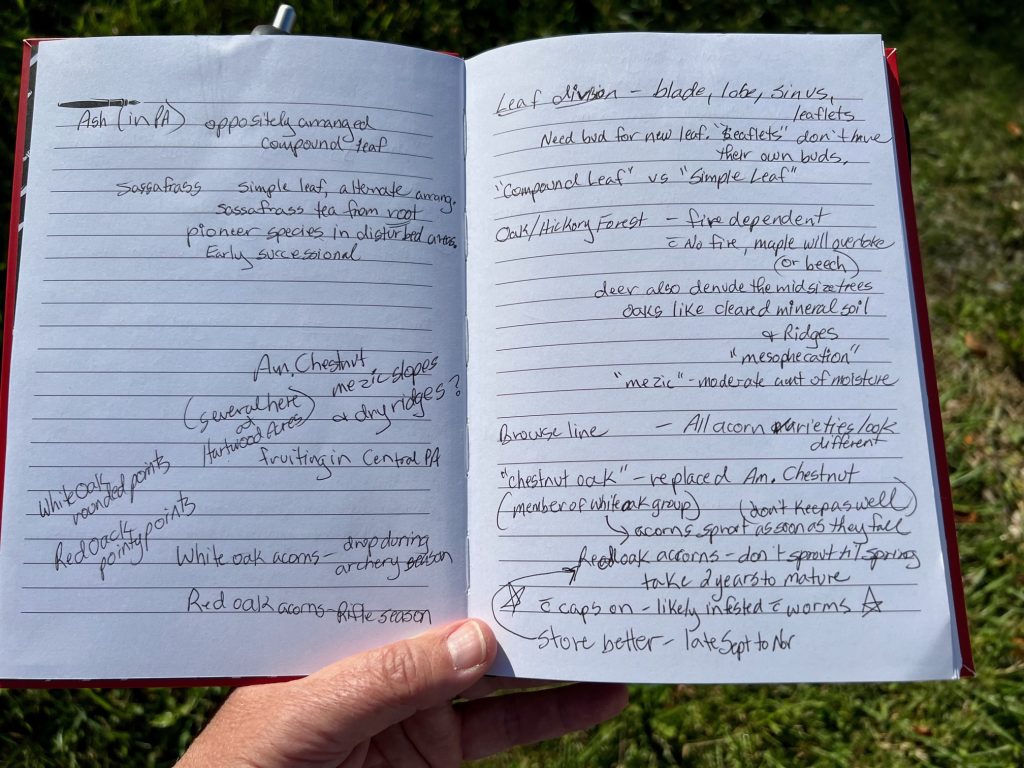 Ash (in PA) oppositely arranged
compound leaf
Sassafrass simple leaf, alternate arrang.
sassafrass tea from root
pioneer species in disturbed areas.
Early successional
Am. Chestnut
mezic slopes
(several here
at
Hartwood Acres)
& dry ridges?
fruiting in Central PA
White oak
rounded points
Red oack
pointy points
White oak acorns - drop during
archery season
Red oak acorns - Rifle season
Leaf division - blade, lobe, sinus,
leaflets
Need bud for new leaf. "Leaflets" don't have
their own buds.
"Compound Leaf" vs "Simple Leaf"
Oak/Hickory Forest - fire dependent
c̄ No fire, maple will overtake
(or beech)
deer also denude the midsize trees
oaks like cleared mineral soil
& Ridges
"mesophecation"
"mezic" - moderate amt of moisture
Browse line - All acorn varieties look
different
"chestnut oak" - replaced Am. Chestnut
(member of white oak group) (don't keep as well)
↳ acorns sprout as soon as they fall
Red oak acorns - don't sprout til spring
take 2 years to mature
☆ c̄ caps on - likely infested c̄ worms ☆
Store better - late Sept to Nov